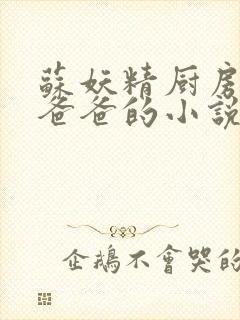 蘇妖精厨房
爸爸的小説
企鵝不會哭的